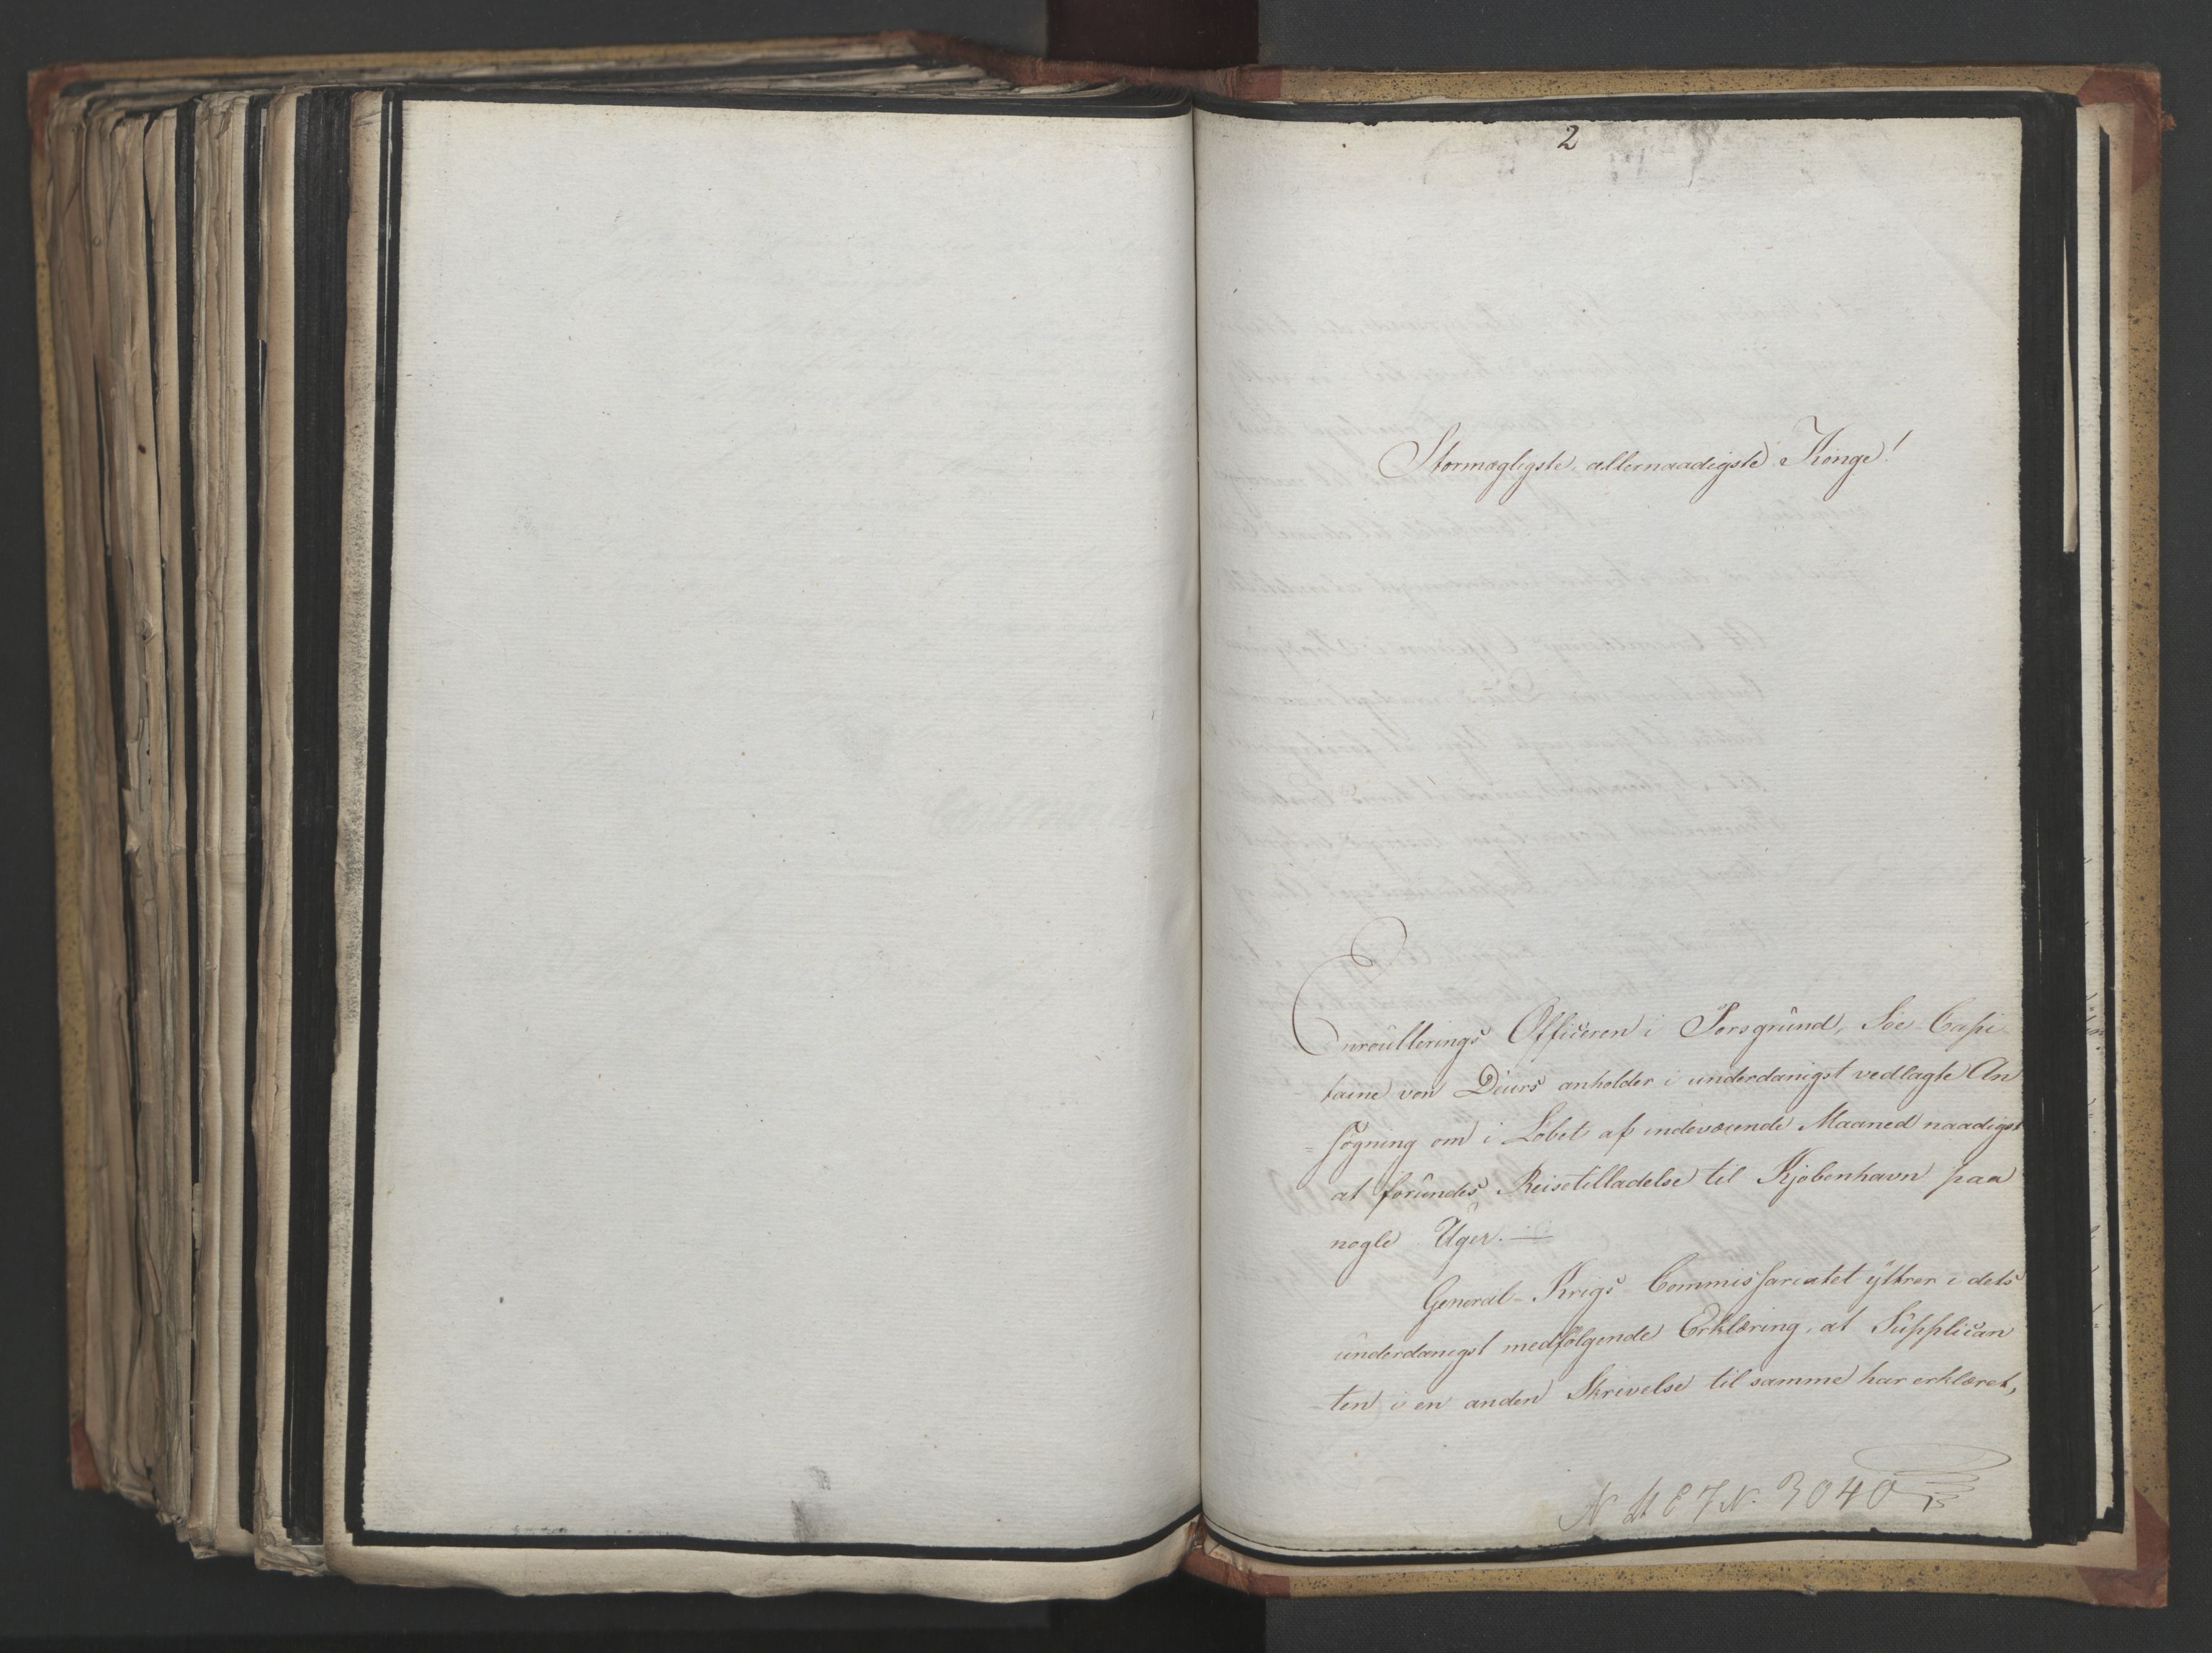 2
Stormægtigste, allernaadigste Konge!
Enroullerings Officeren i Porsgrund, Søe-Capi-
taine von Deurs anholder i underdanigst vedlagte An
=søgning om i Løbet af indeværende Maaned naadigst
at forundes Reisetilladelse til Kjøbenhavn paa
nogle Uger. —
General-Krigs-Commissariatet yttrer i dets
underdanigst medfølgende Erklæring, at Supplican
-ten i en anden Skrivelse til samme har erklæret,
3040